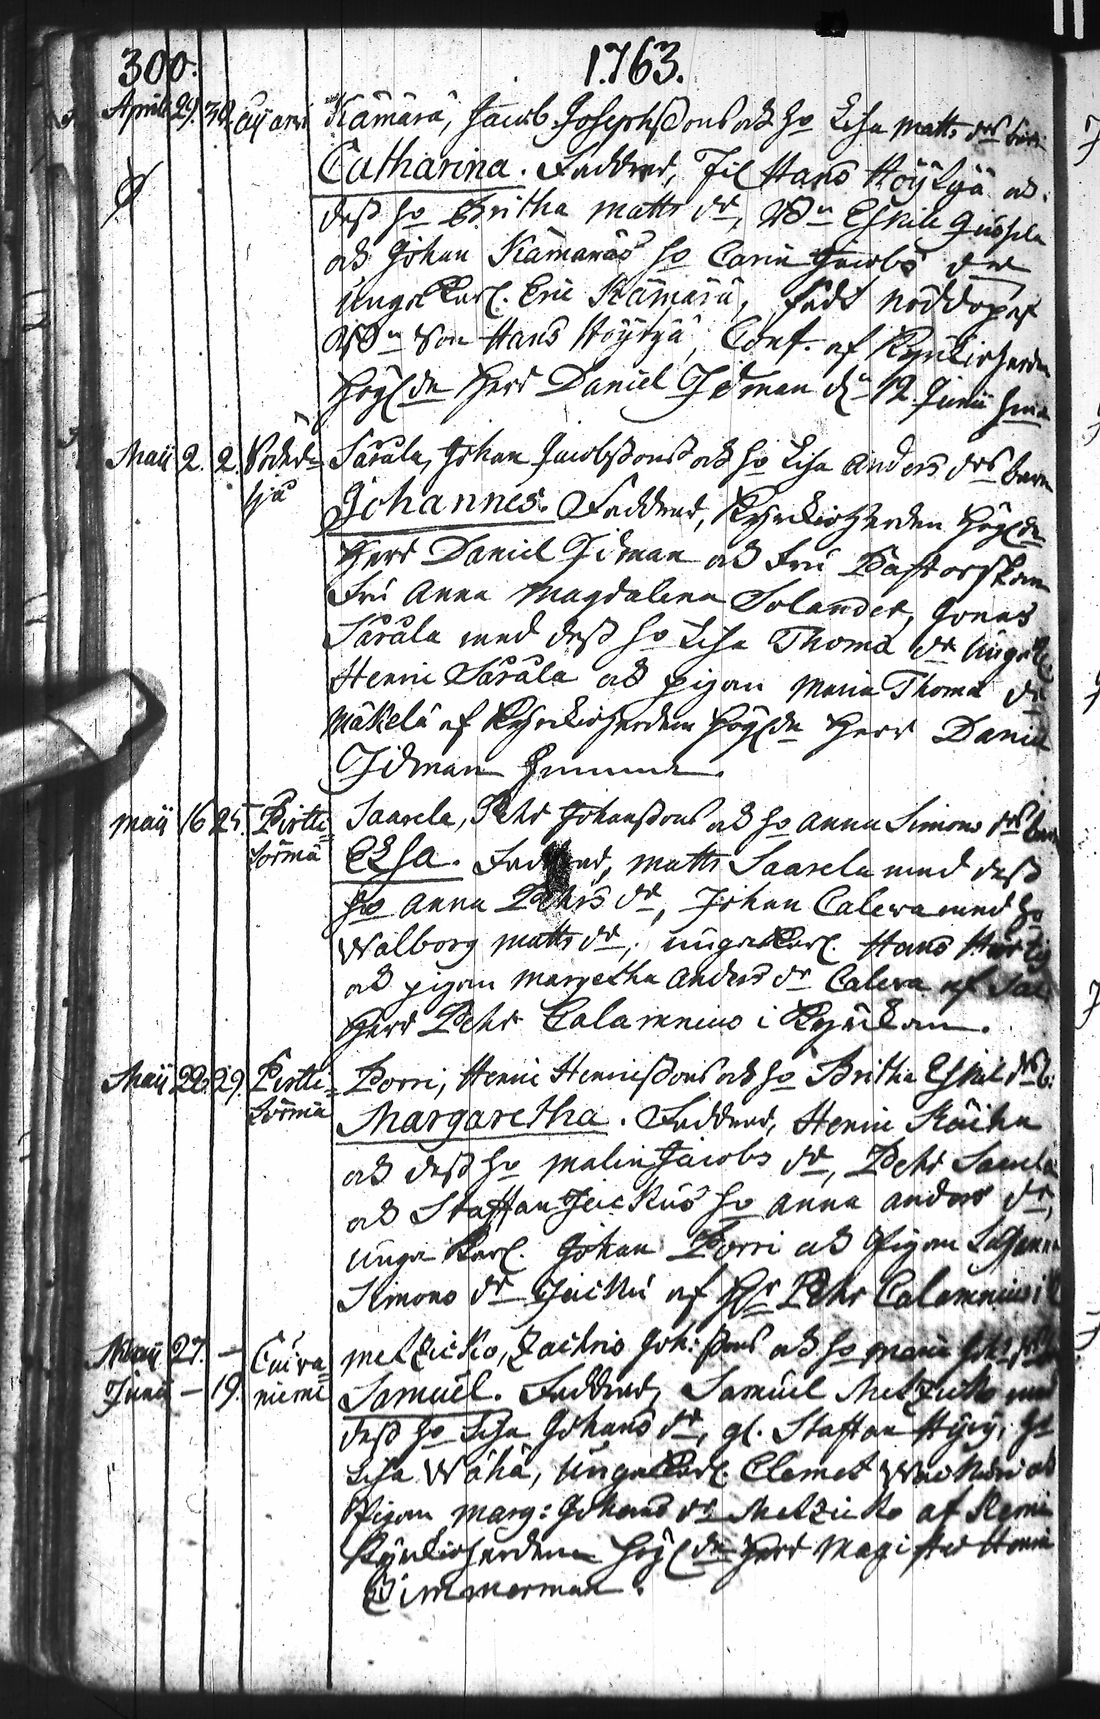 300.
1763.
April 29. 30. Kämärä, Jacob Josephssons och ho Lisa Matts drs barn
Catharina. Faddrar, Hans Höyhyä och
dess ho Britha Matts dr, Eskill
och Johan Kämäräs ho Carin Jacobs dr
unge Karl. Eric Kämärä, födt nöddöpt
af Bn Son Hans Höyhyä, Conf. af Kyrckioherden
Högl dn Herr Daniel Idman dn 12 Junii
Maii 2. 2. Såråla, Johan Jacobssons och ho Lisa Anders drs barn
Johannes. Faddrar, Kyrckioherden Högl dn
Herr Daniel Idman och Fru Pastorskan
Fru Anna Magdalena Solander, Jonas
Såråla med dess ho Lisa Thoma dr unge K.
Henric Såråla och pigan Maria Thoma dr
Mäkelä af Kyrckioherden Högl dn Herr Daniel
Idman hemma.
Maii 16 25. Pirtti= Saarela, Pehr Johanssons och ho Anna Simons drs barn
Sormä Elsa. Faddrar, Matts Saarela med dess
ho Anna Pehrs dr, Johan Caleva med ho
Walborg Matts dr, unge Karl. Hans
och pigan Margetha Anders dr Caleva af Sac.
Herr Pehr Calamnius i Kyrckan.
Maii 22. 29. Pirtti= Porri, Henric Henricssons och ho Britha Eskils drs b:
Sormä Margaretha. Faddrar, Henric
och dess ho Malin Jacobs dr, Pehr Saarela
och Staffan Jeickus ho Anna Anders dr,
unge Karl. Johan Porri och Pigan Susanna
Simons dr Jeicku af Hr Pehr Calamnius i K.
Maii 27. — Cuiva= Metzicko, Zachris Joh: sons och ho Maria Joh: drs
Junii — 19. niemi Samuel. Faddrar, Samuel Metzicko med
dess ho Lisa Johans dr, gl. Staffan Hyry, ho
Lisa Wähä, unge Karl. Clemet och
Pigan Marg: Johans dr Metzicko af Kemi
Kyrckioherden Högl dn Herr Magister Henric
Zimmerman.